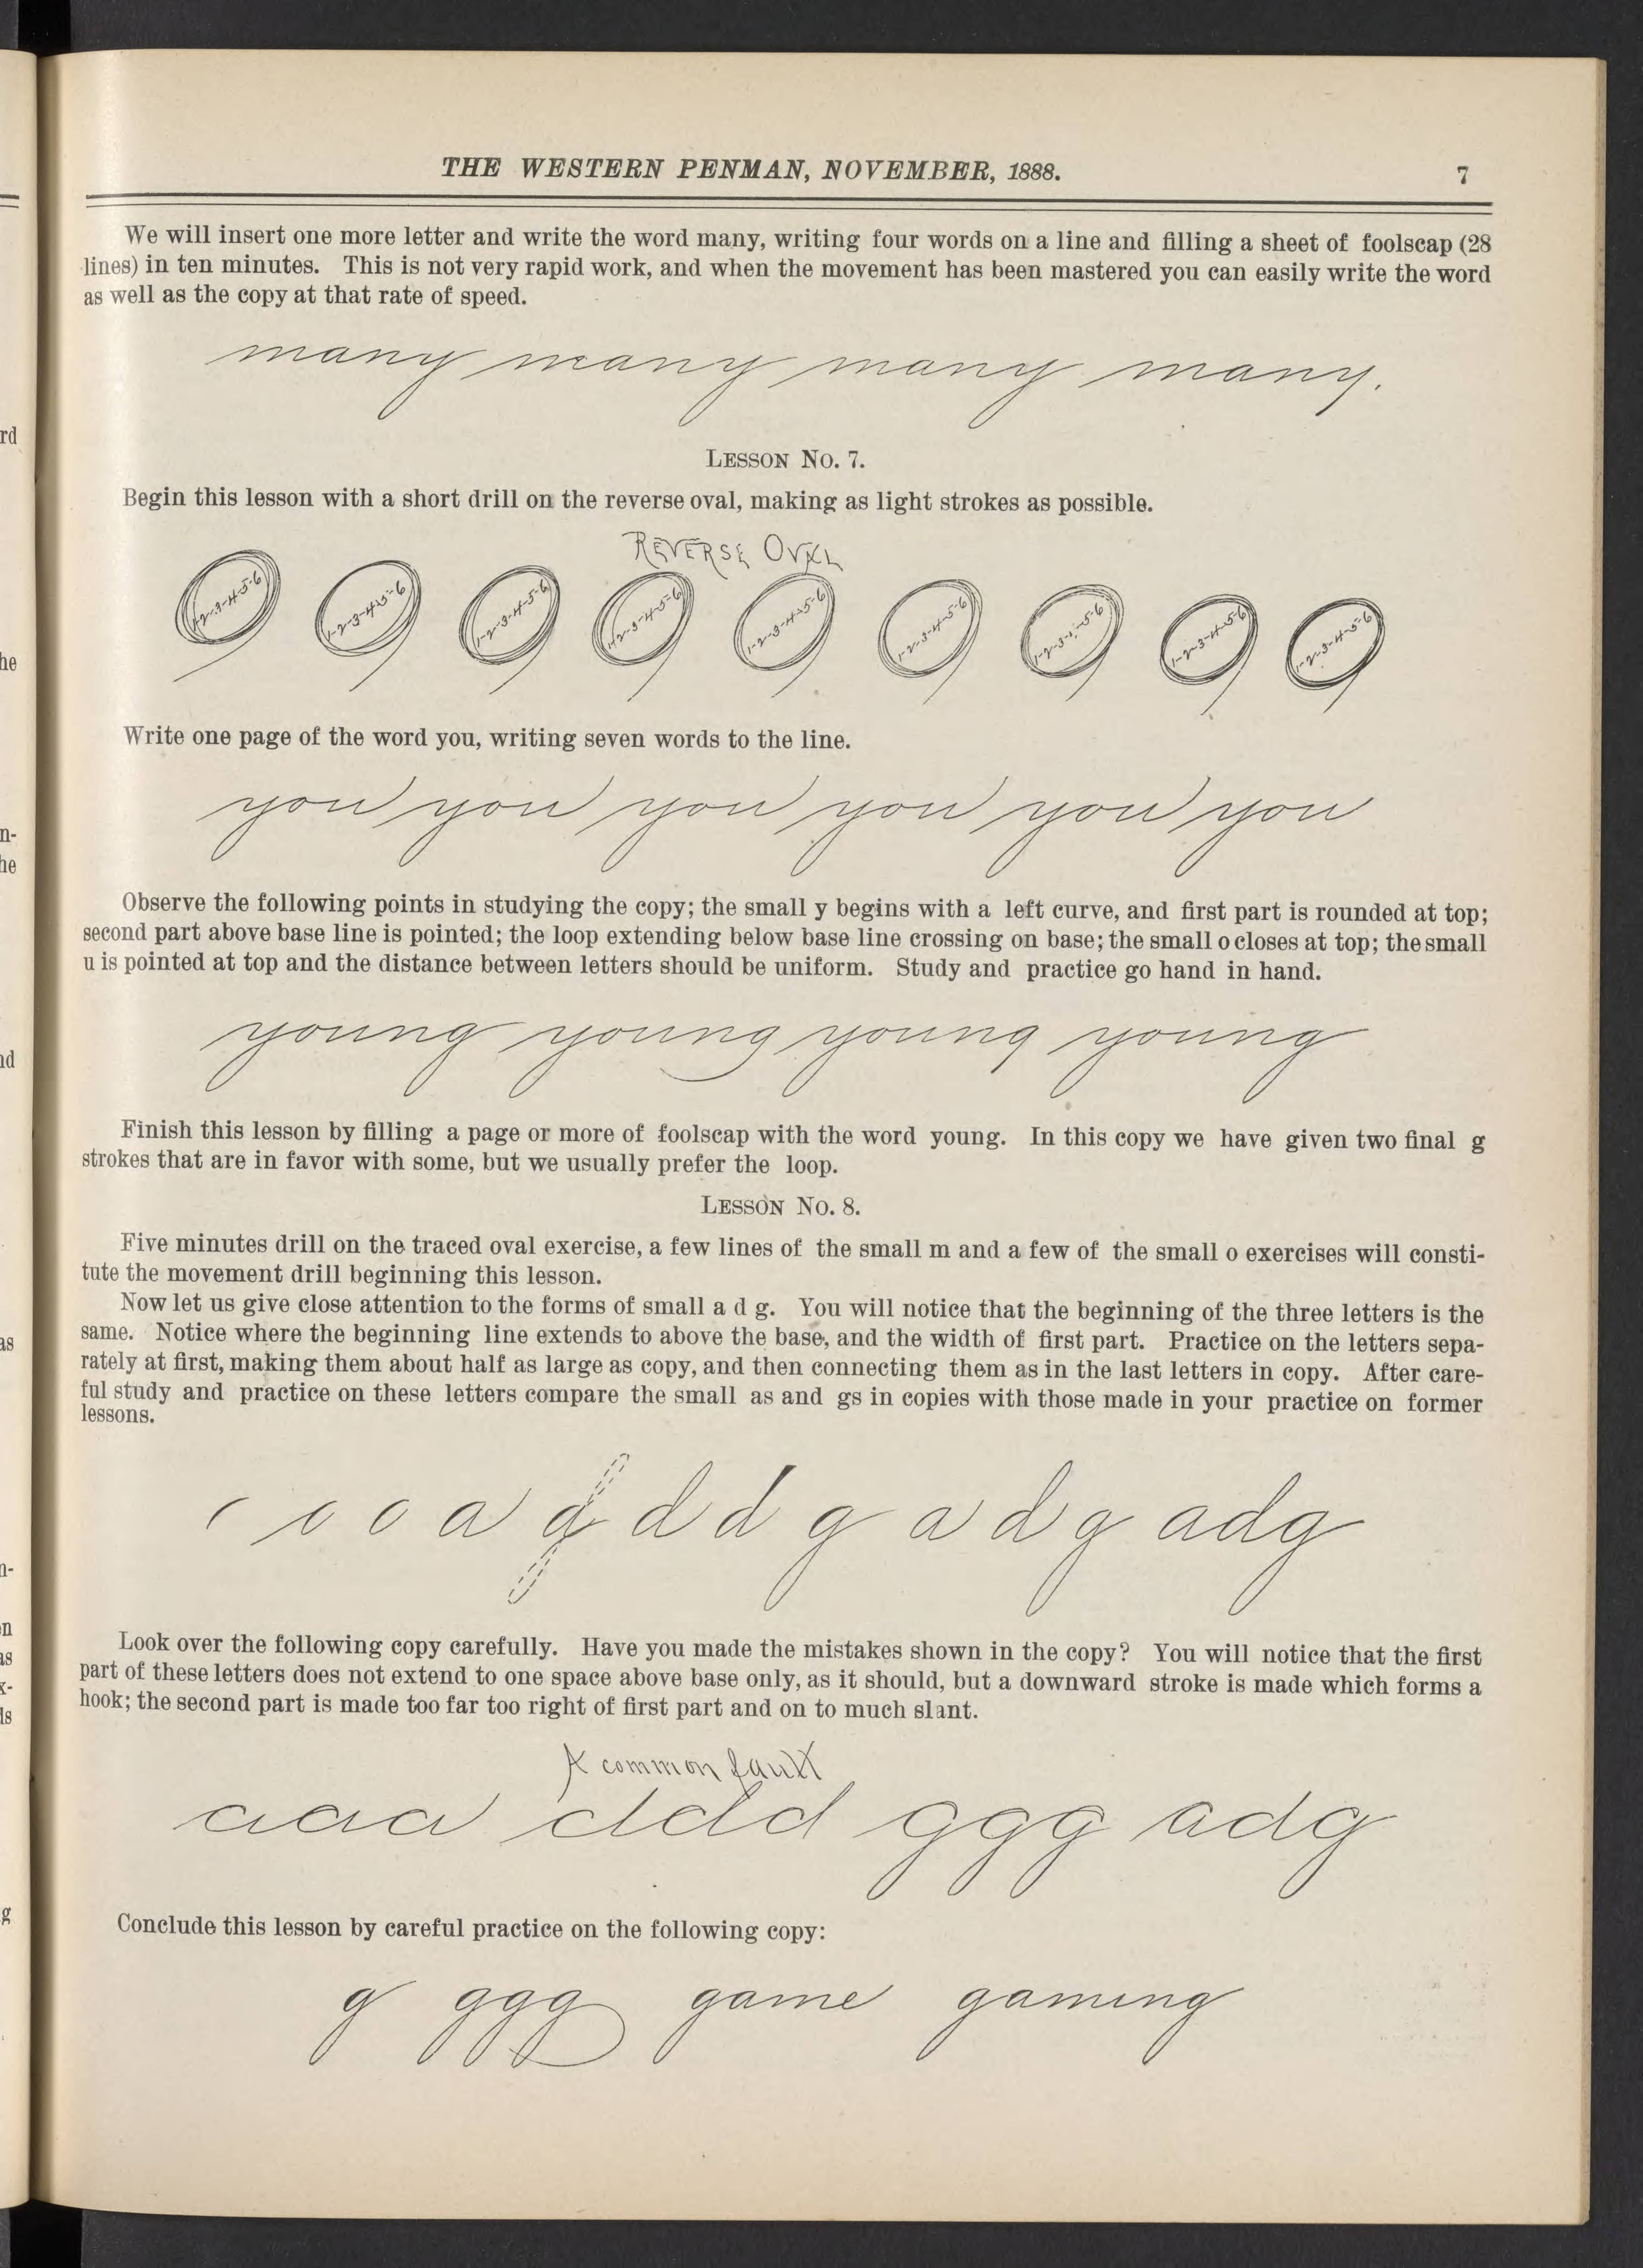 THE WESTERN PENMAN, NOVEMBER, 1888. 7
We will insert one more letter and write the word many, writing four words on a line and filling a sheet of foolscap (28
lines) in ten minutes. This is not very rapid work, and when the movement has been mastered you can easily write the word
as well as the copy at that rate of speed.
many many many many.
LESSON NO. 7.
Begin this lesson with a short drill on the reverse oval, making as light strokes as possible.
REVERSE OVAL
1-2-3-4-5-6 1-2-3-4-5-6 1-2-3-4-5-6 1-2-3-4-5-6 1-2-3-4-5-6 1-2-3-4-5-6 1-2-3-4-5-6 1-2-3-4-5-6 1-2-3-4-5-6
Write one page of the word you, writing seven words to the line.
you you you you you you
Observe the following points in studying the copy; the small y begins with a left curve, and first part is rounded at top;
second part above base line is pointed; the loop extending below base line crossing on base; the small o closes at top; the small
u is pointed at top and the distance between letters should be uniform. Study and practice go hand in hand.
young young young young
Finish this lesson by filling a page or more of foolscap with the word young. In this copy we have given two final g
strokes that are in favor with some, but we usually prefer the loop.
LESSON NO. 8.
Five minutes drill on the traced oval exercise, a few lines of the small m and a few of the small o exercises will consti-
tute the movement drill beginning this lesson.
Now let us give close attention to the forms of small a d g. You will notice that the beginning of the three letters is the
same. Notice where the beginning line extends to above the base, and the width of first part. Practice on the letters sepa-
rately at first, making them about half as large as copy, and then connecting them as in the last letters in copy. After care-
ful study and practice on these letters compare the small as and gs in copies with those made in your practice on former
lessons.
o o a d d d g a d g adg
Look over the following copy carefully. Have you made the mistakes shown in the copy? You will notice that the first
part of these letters does not extend to one space above base only, as it should, but a downward stroke is made which forms a
hook; the second part is made too far too right of first part and on to much slant.
A common fault
aaa ddd ggg adg
Conclude this lesson by careful practice on the following copy:
g ggg game gaming